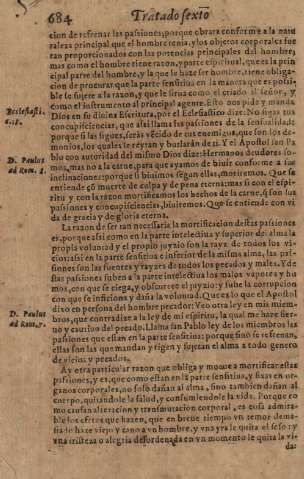 684 Tratado sexto
cion de refrenar las passiones, porque obrara conforme a la natu
raleza principal que el hombre tenia, y los objetos corporales fue
ran proporcionados con las potencias principales del hombre;
mas como el hombre tiene razon, y parte espiritual, que es la prin
cipal parte del hombre, y la que le haze ser hombre, tiene obliga-
cion de procurar que la parte sensitiua en la manera que es possi-
ble se sujete a la razon, y que le sirua como el criado al señor, y
como el instrumento al principal agente. Esto nos pide y manda
Ecclesiasti.
c.18.
Dios en su diuina Escritura, por el Eclesiastico dize: No sigas tus
concupiscencias, que assi llama las passiones de la sensualidad
porque si las sigues, seràs vēcido de tus enemigos, que son los de-
monios, los quales se reyran y burlaràn de ti. Y el Apostol san Pa
D. Paulus
ad Rom. 8.
blo con autoridad del mismo Dios dize: Hermanos deudores so-
mos, mas no a la carne, para que ayamos de biuir conforme a sus
inclinaciones: porque si biuimos segun ellas, moriremos. Que se
entiende cō muerte de culpa y de pena eterna: mas si con el espi-
ritu y con la razon mortificamos los hechos de la carne, q̃ son sus
passiones y concupiscencias, biuiremos. Que se entiende con vi
da de gracia y de gloria eterna.
La razon de ser tan necessaria la mortificacion destas passiones
es, porque assi como en la parte intelectiua y superior del alma la
propia voluntad y el propio juyzio son la rayz de todos los vi-
cios: assi en la parte sensitiua e inferior de la misma alma, las pas-
siones son las fuentes y rayzes de todos los pecados y males. Y de
stas passiones suben a la parte intelectiua los malos vapores y hu
mos, con que se ciega, y obscurece el juyzio: y sube la corrupcion
con que se inficiona y daña la voluntad. Que es lo que el Apostol
D. Paulus
ad Rom. 7.
dixo en persona del hombre pecador: Veo otra ley en mis miem-
bros, que contradize a la ley de mi espiritu, la qual me haze sier-
uo y cautiuo del pecado. Llama san Pablo ley de los miembros las
passiones que estan en la parte sensitiua: porque sino se refrenan,
ellas son las que mandan y rigen y sujetan el alma a todo genero
de vicios y pecados.
Ay otra particular razon que obliga y mueue a mortificar estas
passiones, y es, que como estan en la parte sensitiua, y fixas en or-
ganos corporales, no solo dañan al alma, sino tambien dañan al
cuerpo, quitandole la salud, y consumiendole la vida. Porque co
mo causan alteracion y transmutacion corporal, es cosa admira-
ble los efetos que hazen, que en breue tiempo vn temor dema-
siado haze viejo y cano a vn hombre, y vna yra le quita el seso: y
vna tristeza o alegria desordenada en vn momento le quita la vi-
da: